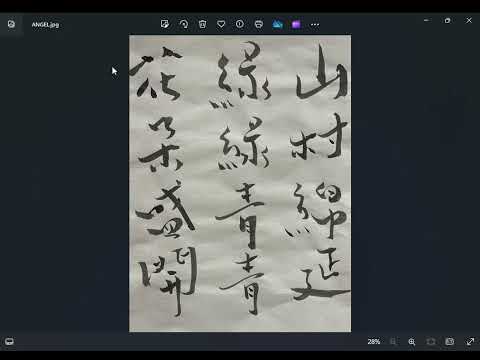 ANGEL.jpg
山村綿延
綠綠青青
花朵盛開
28%